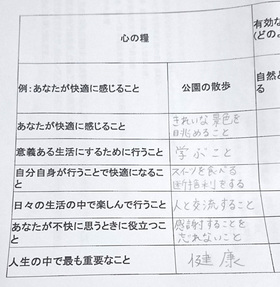 心の糧
有効な
(どの。
例:あなたが快適に感じること
公園の散歩
自然と
る
あなたが快適に感じること
きれいな景色を
眺めること
意義ある生活にするために行うこと
学ぶこと
自分自身が行うことで快適になる
こと
スイーツを食べる
日々の生活の中で楽しんで行うこと
人と交流すること
あなたが不快に思うときに役立つこ
と
感謝することを
忘れないこと
人生の中で最も重要なこと
健康